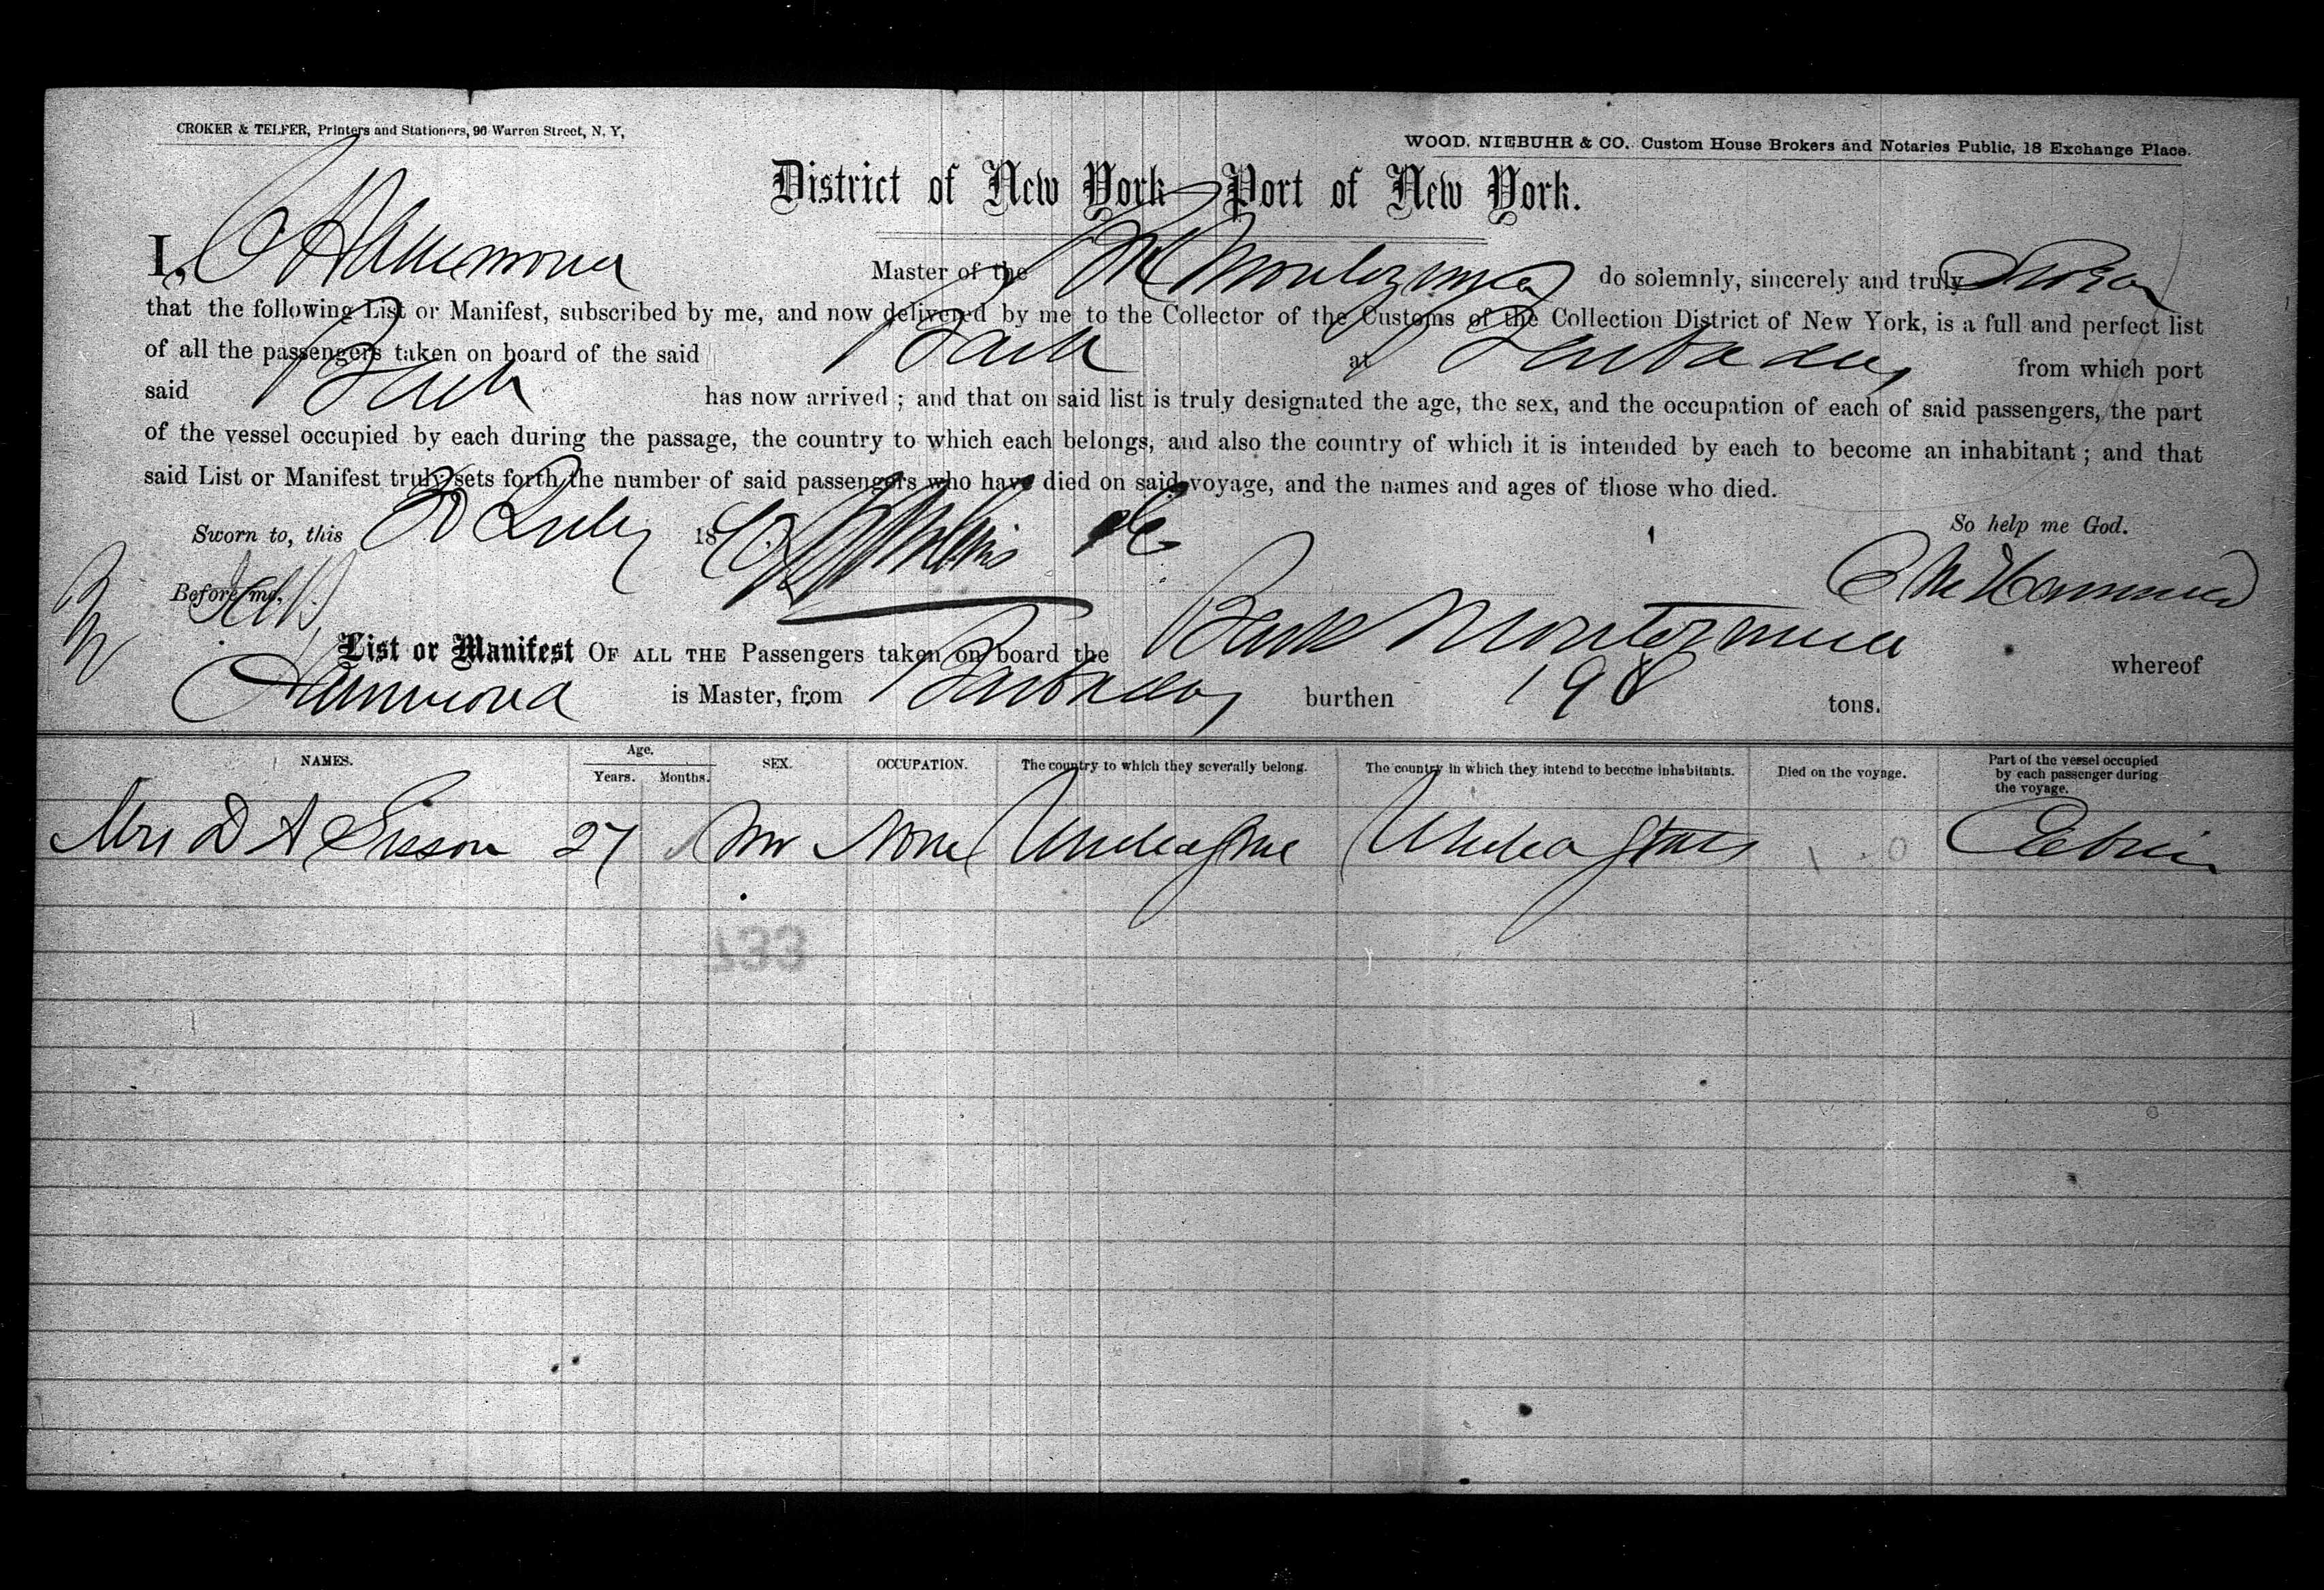 CROKER & TELFER, Printers and Stationers, 96 Warren Street, N. Y.
WOOD, NIEBUHR & CO. Custom House Brokers and Notaries Public, 18 Exchange Place.
District of New York Port of New York.
I, C Hammond Master of the Montezuma do solemnly, sincerely and truly Swear
that the following List or Manifest, subscribed by me, and now delivered by me to the Collector of the Customs of the Collection District of New York, is a full and perfect list
of all the passengers taken on board of the said Bark at Barbados from which port
said Bark has now arrived ; and that on said list is truly designated the age, the sex, and the occupation of each of said passengers, the part
of the vessel occupied by each during the passage, the country to which each belongs, and also the country of which it is intended by each to become an inhabitant ; and that
said List or Manifest truly sets forth the number of said passengers who have died on said voyage, and the names and ages of those who died.
Sworn to, this July 18 So help me God.
Before me, Hammond
List or Manifest OF ALL THE Passengers taken on board the Bark Montezuma whereof
Hammond is Master, from Barbados burthen 198 tons.
NAMES. Age. Years. Months. SEX. OCCUPATION. The country to which they severally belong. The country in which they intend to become inhabitants. Died on the voyage. Part of the vessel occupied by each passenger during the voyage.
Mrs D A Sisson 27 None United States United States 0 Cabin
733